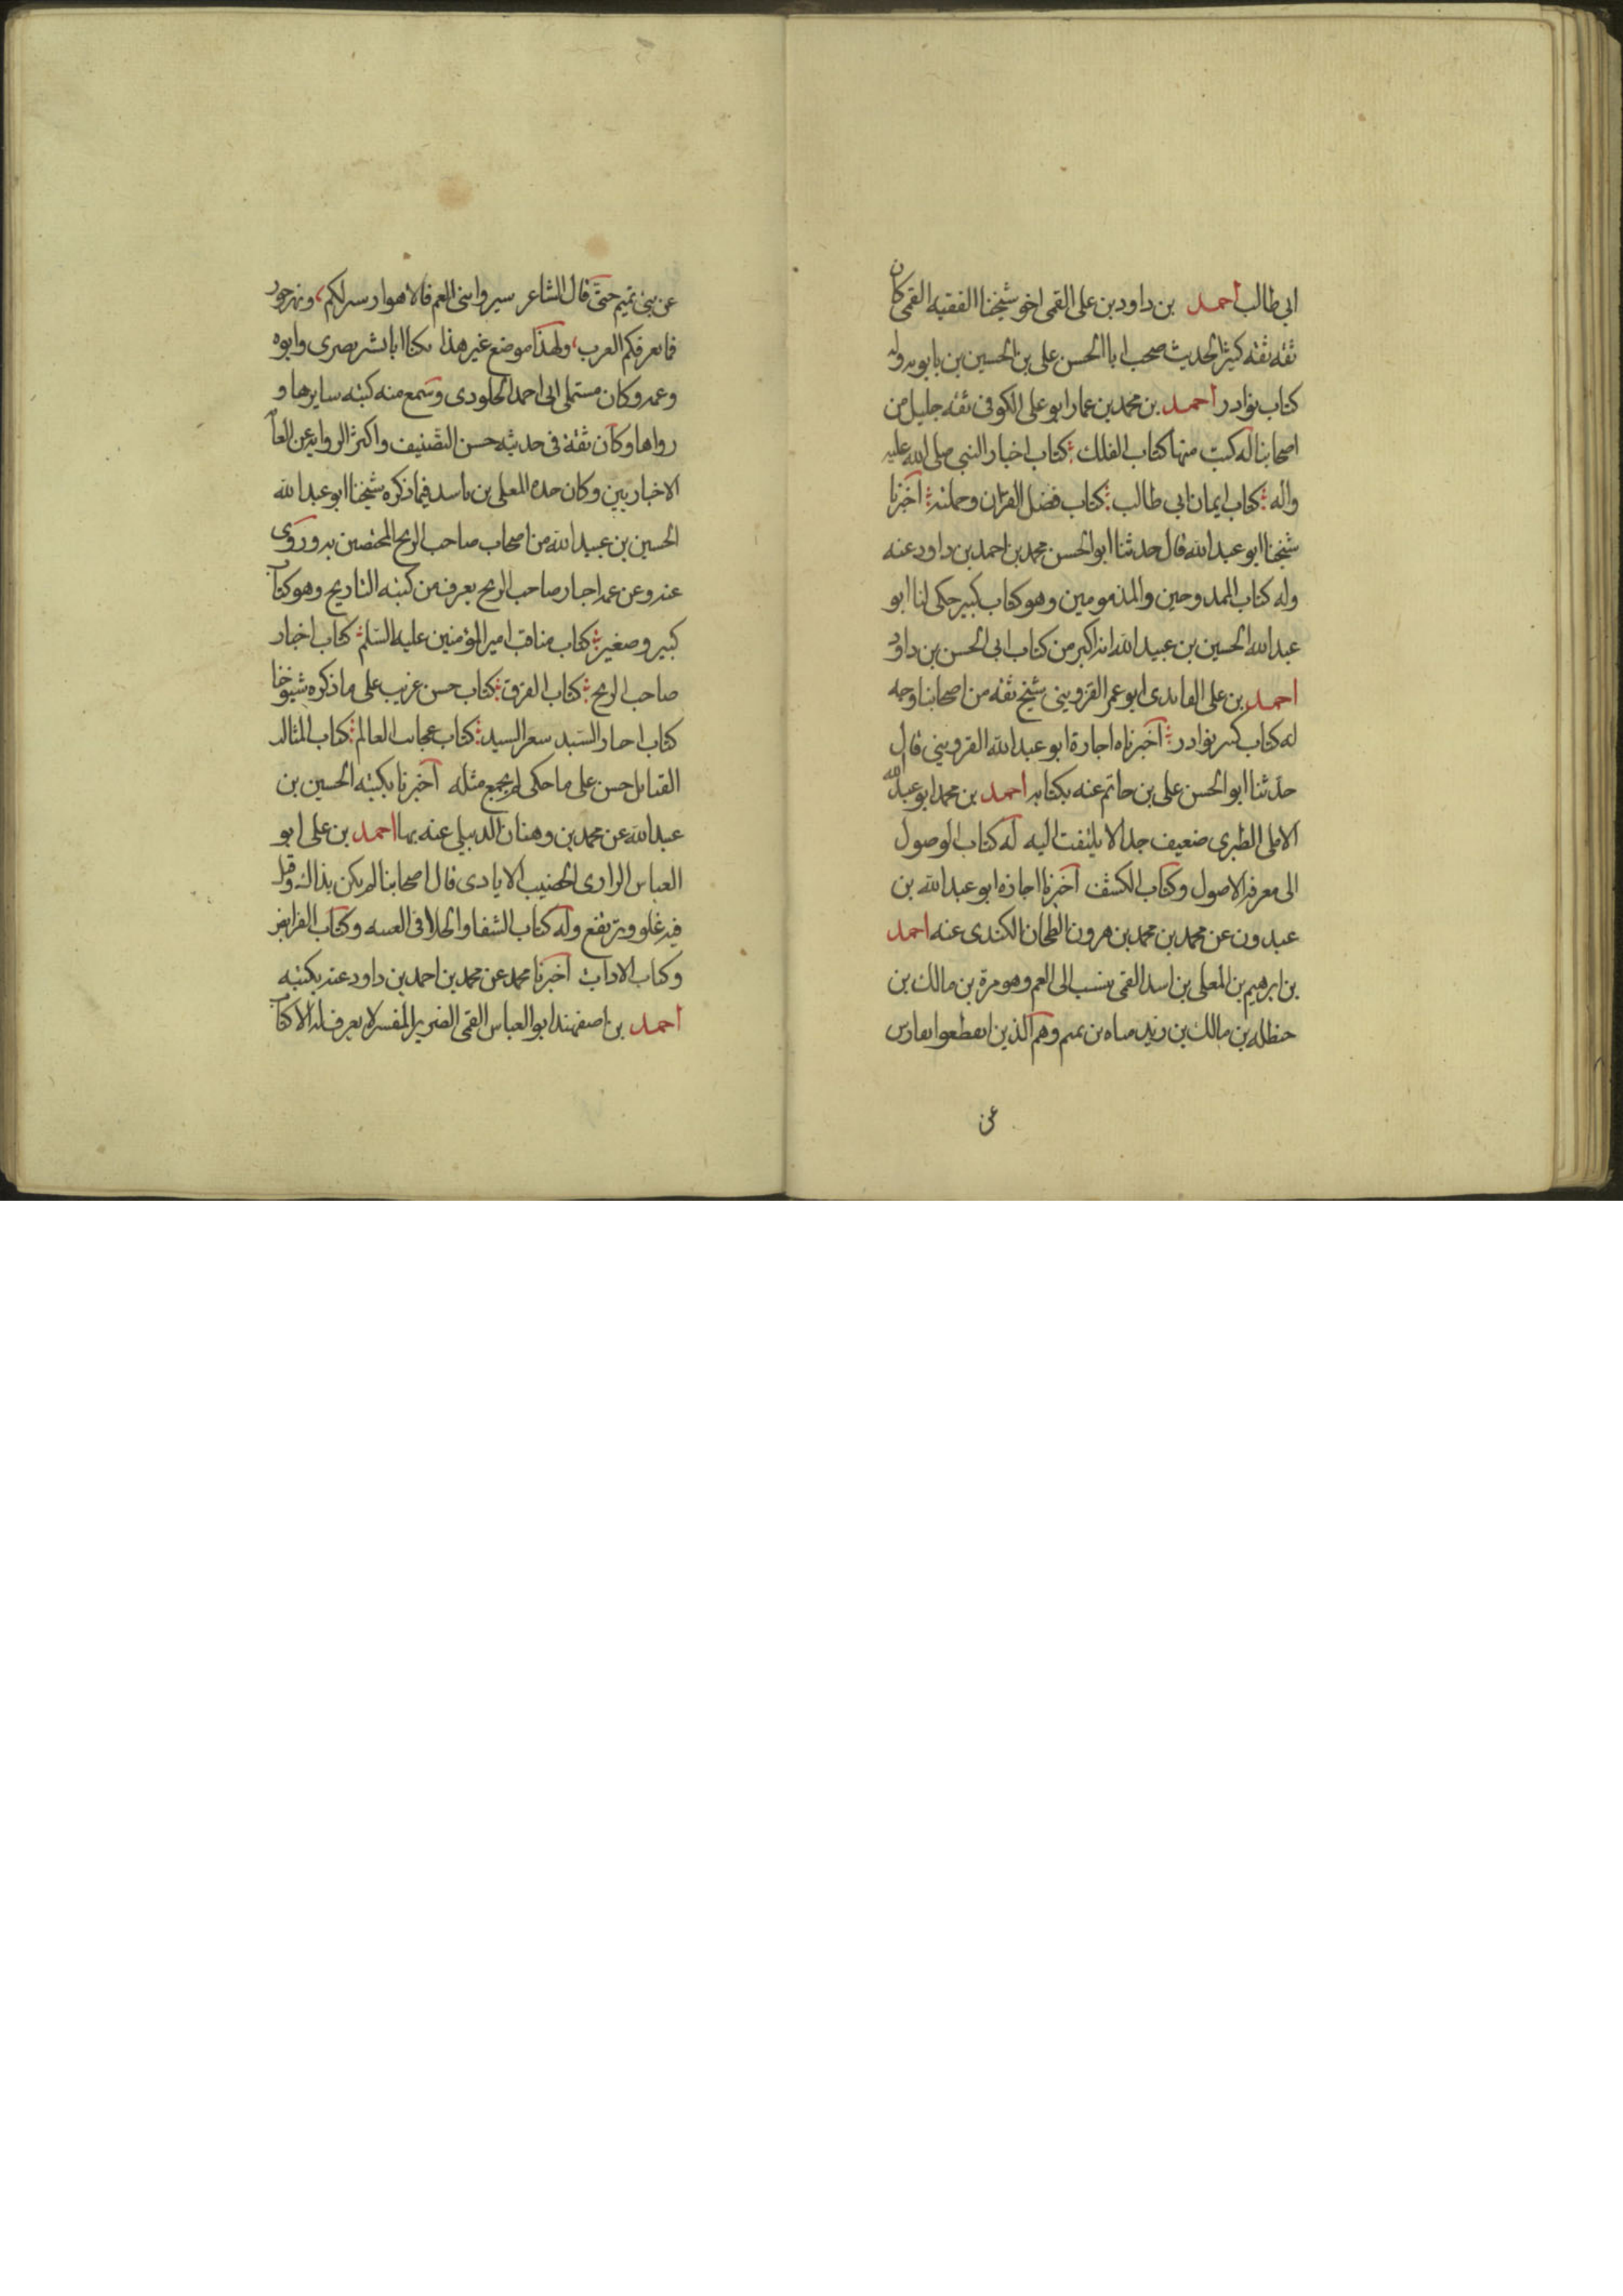 ابي طالب احمد بن داود بن علي القمي اخو شيخنا الفقيه القمي كان
ثقة ثقة كثير الحديث صحب ابا الحسن علي بن الحسين بن بابويه وله
كتاب نوادر احمد بن محمد بن عمار ابو علي الكوفي ثقة جليل من
اصحابنا له كتب منها كتاب الفلك كتاب اخبار النبي صلى الله عليه
واله كتاب ايمان ابي طالب كتاب فضل القران وحملته اخبرنا
شيخنا ابو عبد الله قال حدثنا ابو الحسن محمد بن احمد بن داود عنه
وله كتاب الممدوحين والمذمومين وهو كتاب كبير حكى لنا ابو
عبد الله الحسين بن عبيد الله انه اكبر من كتاب ابي الحسن بن داود
احمد بن علي الفائدى ابو عمر القزويني شيخ ثقة من اصحابنا وجه
له كتاب كبير نوادر اخبرناه اجازة ابو عبد الله القزويني قال
حدثنا ابو الحسن علي بن حاتم عنه بكتابه احمد بن محمد ابو عبد الله
الاملي الطبري ضعيف جدا لا يلتفت اليه له كتاب الوصول
الى معرفة الاصول وكتاب الكشف اخبرنا اجازة ابو عبد الله بن
عبدون عن محمد بن محمد بن هرون الطحان الكندي عنه احمد
بن ابرهيم بن المعلى بن اسد القمي ينسب الى العم وهو مرة بن مالك بن
حنظله بن مالك بن زيد مناه بن تميم وهم الذين انقطعوا بفارس
عن
عن بني تميم حتى قال الشاعر سيروا بني العم فالاهواز منزلكم ونهر جور
فما تعرفكم العرب ولهذا موضع غير هذا يكنا ابا بشر بصري وابوه
وعمه وكان مستملي ابي احمد الجلودي وسمع منه كتبه سايرها و
رواها وكان ثقة في حديثه حسن التصنيف واكثر الرواية عن العا
الاخباريين وكان جده المعلى بن اسد فيما ذكره شيخنا ابو عبد الله
الحسين بن عبيد الله من اصحاب صاحب الزنج المختصين به وروى
عنه وعن عمه اخبار صاحب الزنج يعرف من كتبه التاريخ وهو كتاب
كبير وصغير كتاب مناقب امير المؤمنين عليه السلم كتاب اخبار
صاحب الزنج كتاب الفرق كتاب حسن غريب على ما ذكره شيوخنا
كتاب اخبار السيد شعر السيد كتاب عجائب العالم كتاب المثالب
القبايل حسن على ما حكى لم يجمع مثله اخبرنا بكتبه الحسين بن
عبد الله عن محمد بن وهبان الدبيلي عنه بها احمد بن علي ابو
العباس الرازي الخضيب الايادي قال اصحابنا لم يكن بذاك وقيل
فيه غلو وترتفع وله كتاب الشفا والجلا في الغيبه وكتاب الفرايض
وكتاب الاداب اخبرنا محمد عن محمد بن احمد بن داود عنه بكتبه
احمد بن اصفهبند ابو العباس القمي الضرير المفسر لا يعرف له الا كتاب